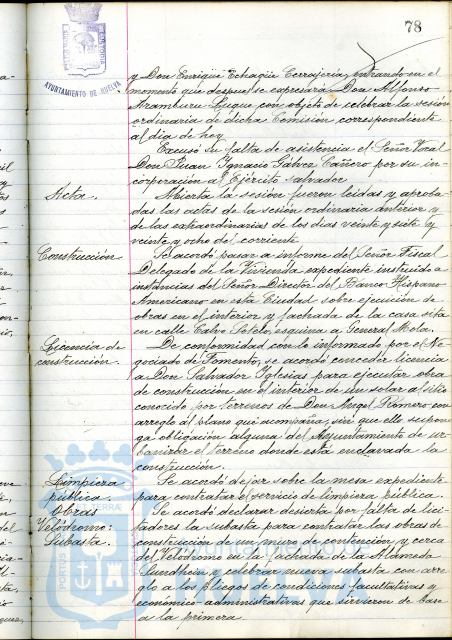 78
AYUNTAMIENTO DE HUELVA
y Don Enrique Echagüe Cerrojería, entrando en el
momento que después se expresará Don Alfonso
Aramburu Luque, con objeto de celebrar la sesión
ordinaria de dicha Comisión correspondiente
al día de hoy
Excusó su falta de asistencia el Señor Vocal
Don Juan Ignacio Gálvez Cañero por su in-
corporación al Ejército salvador
Acta.
Abierta la sesión fueron leidas y aproba-
das las actas de la sesión ordinaria anterior y
de las extraordinarias de los dias veinte y siete y
veinte y ocho del corriente
Construcción
Se acordó pasar a informe del Señor Fiscal
Delegado de la Vivienda expediente instruido a
instancias del Señor Director del Banco Hispano
Americano en esta Ciudad sobre ejecución de
obras en el interior y fachada de la casa sita
en calle Calvo Sotelo, esquina a General Mola.
Licencia de
construcción.
De conformidad con lo informado por el Ne-
gociado de Fomento, se acordó conceder licencia
a Don Salvador Iglesias para ejecutar obra
de construcción en el interior de un solar al sitio
conocido por terrenos de Don Angel Romero con
arreglo al plano que acompaña, sin que ello supon-
ga obligación alguna del Ayuntamiento de ur-
banizar el terreno donde está enclavada la
construcción.
Limpieza
pública.
Se acordó dejar sobre la mesa expediente
para contratar el servicio de limpieza pública.
Obras
Velódromo:
Subasta.
Se acordó declarar desierta por falta de lici-
tadores la subasta para contratar las obras de
construcción de un muro de contención y cerca
del Velódromo en la fachada de la Alameda
Sundhein y celebrar nueva subasta con arre-
glo a los pliegos de condiciones facultativas y
económico-administrativas que sirvieron de base
a la primera.